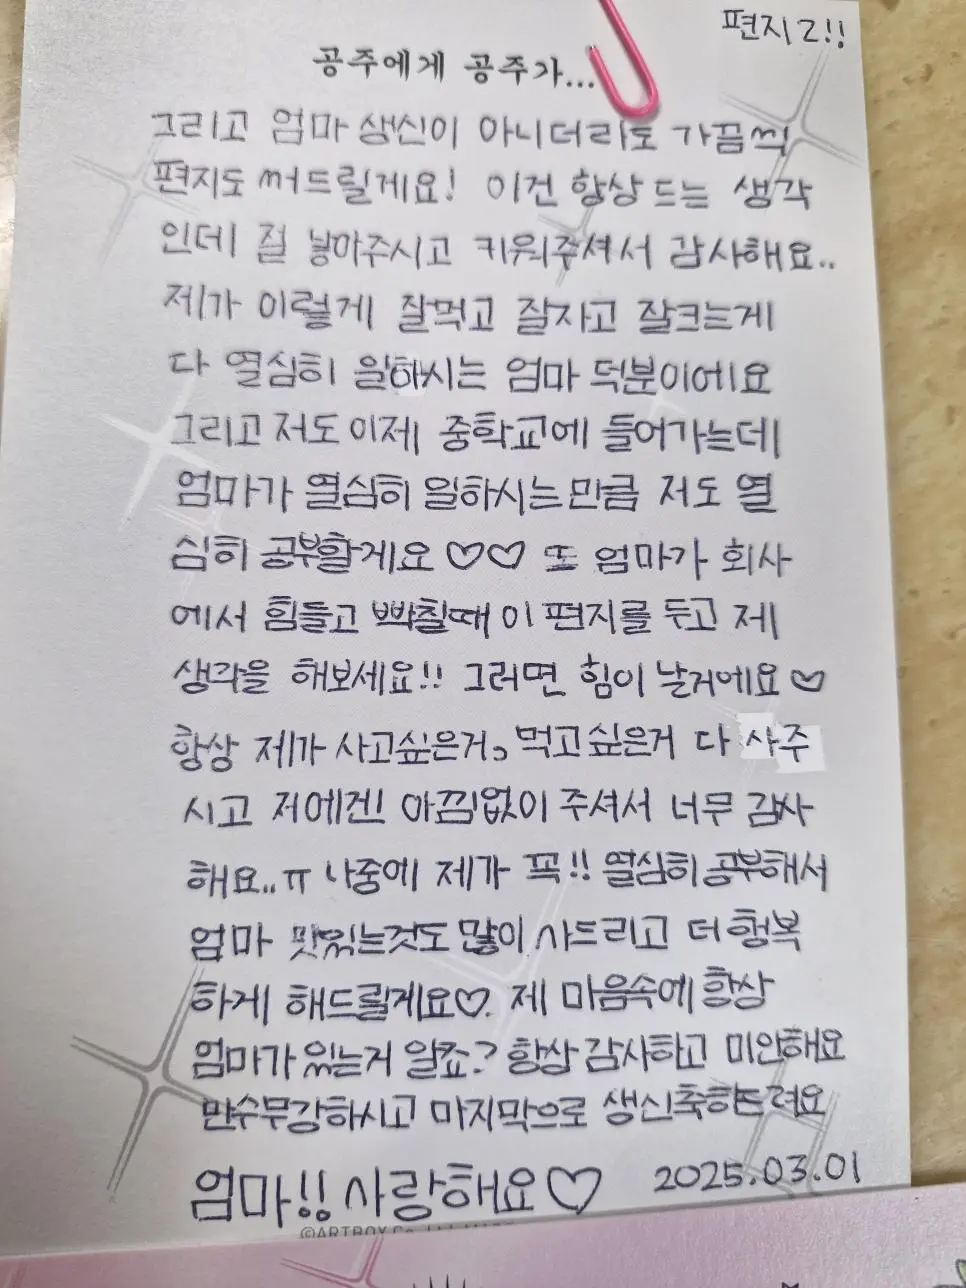 편지2!!
공주에게 공주가...
그리고 엄마 생신이 아니더라도 가끔씩
편지도 써드릴게요! 이건 항상 드는 생각
인데 절 낳아주시고 키워주셔서 감사해요..
제가 이렇게 잘먹고 잘자고 잘크는게
다 열심히 일하시는 엄마 덕분이에요
그리고 저도 이제 중학교에 들어가는데
엄마가 열심히 일하시는만큼 저도 열
심히 공부할게요 ♡♡ 또 엄마가 회사
에서 힘들고 빡칠때 이 편지를 두고 제
생각을 해보세요!! 그러면 힘이 날거에요♡
항상 제가 사고싶은거, 먹고싶은거 다 사주
시고 저에겐! 아낌없이 주셔서 너무 감사
해요..ㅠ 나중에 제가 꼭!! 열심히 공부해서
엄마 맛있는것도 많이 사드리고 더 행복
하게 해드릴게요♡. 제 마음속에 항상
엄마가 있는거 알죠? 항상 감사하고 미안해요
만수무강하시고 마지막으로 생신축하드려요
엄마!! 사랑해요♡ 2025.03.01
©ARTBOX